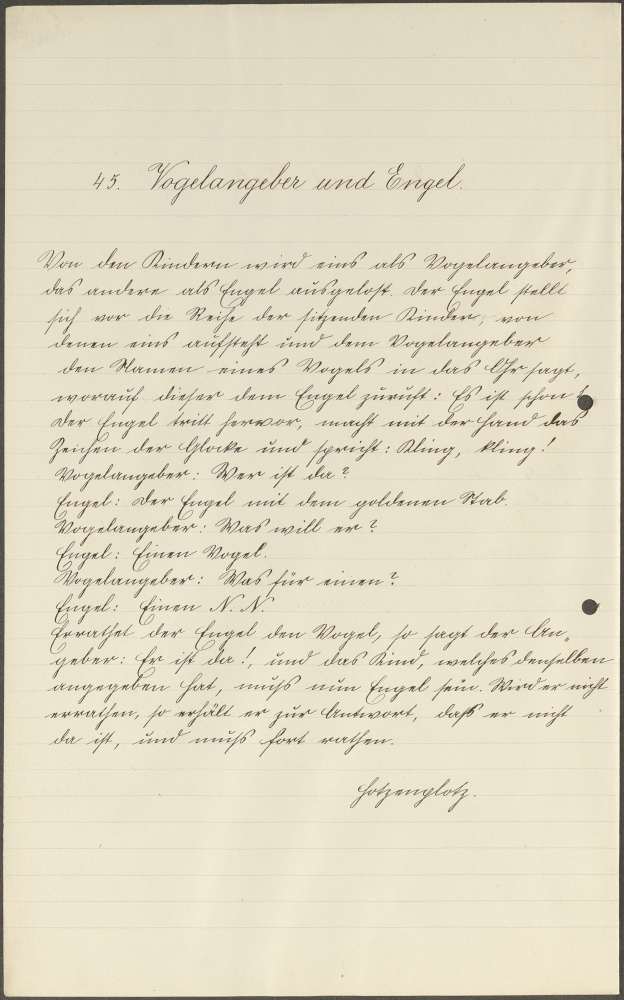 45. Vogelangeber und Engel.
Von den Kindern wird eins als Vogelangeber,
das andere als Engel ausgelost. Der Engel stellt
sich vor die Reihe der sitzenden Kinder, von
denen eins aufsteht und dem Vogelangeber
den Namen eines Vogels in das Ohr sagt,
worauf dieser dem Engel zuruft: Es ist schon!
Der Engel tritt hervor, macht mit der Hand das
Zeichen der Glocke und spricht: Kling, kling!
Vogelangeber: Wer ist da?
Engel: Der Engel mit dem goldenen Stab.
Vogelangeber: Was will er?
Engel: Einen Vogel.
Vogelangeber: Was für einen?
Engel: Einen N. N.
Errathet der Engel den Vogel, so sagt der An-
geber: Er ist da!, und das Kind, welches denselben
angegeben hat, muß nun Engel sein. Wird er nicht
errathen, so erhält er zur Antwort, daß er nicht
da ist, und muß fort rathen.
Hotzenplotz.